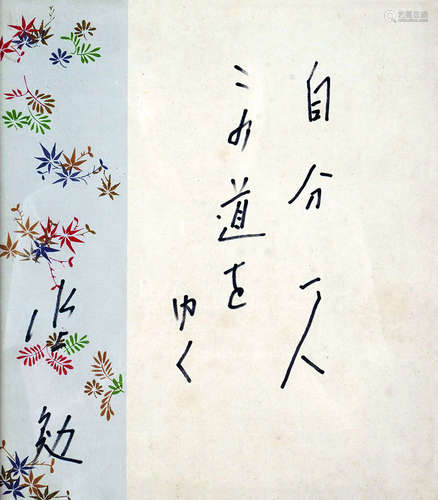 自分一人
この道を
ゆく
水上
勉